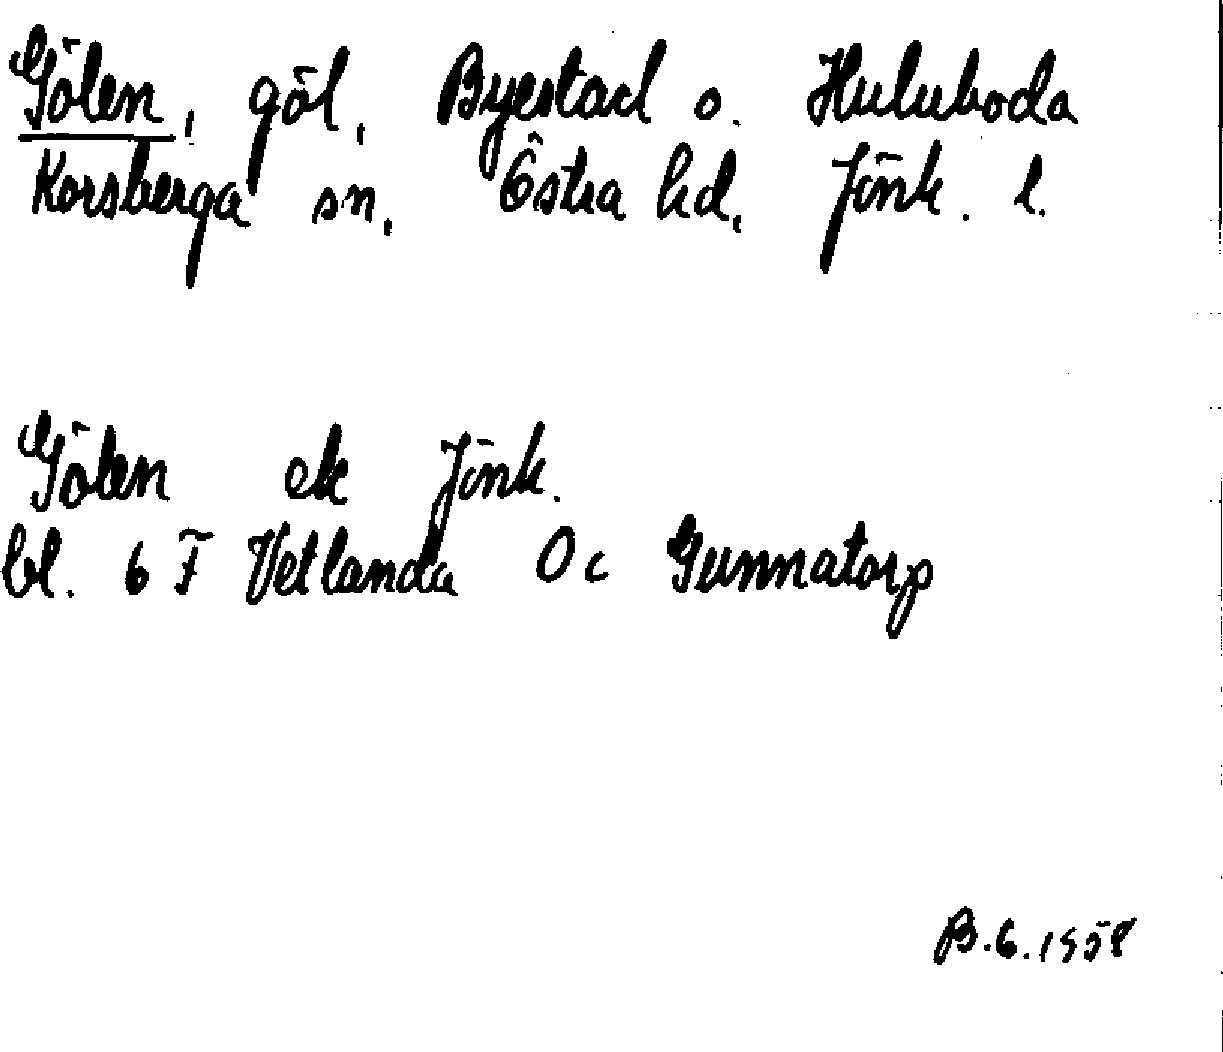 Gölen, göl, Byestad o. Huluboda
Korsberga sn, Östra hd, Jönk. l.
Gölen ek Jönk.
bl. 6 F Vetlanda 0 c Gunnatorp
B.G. 1958